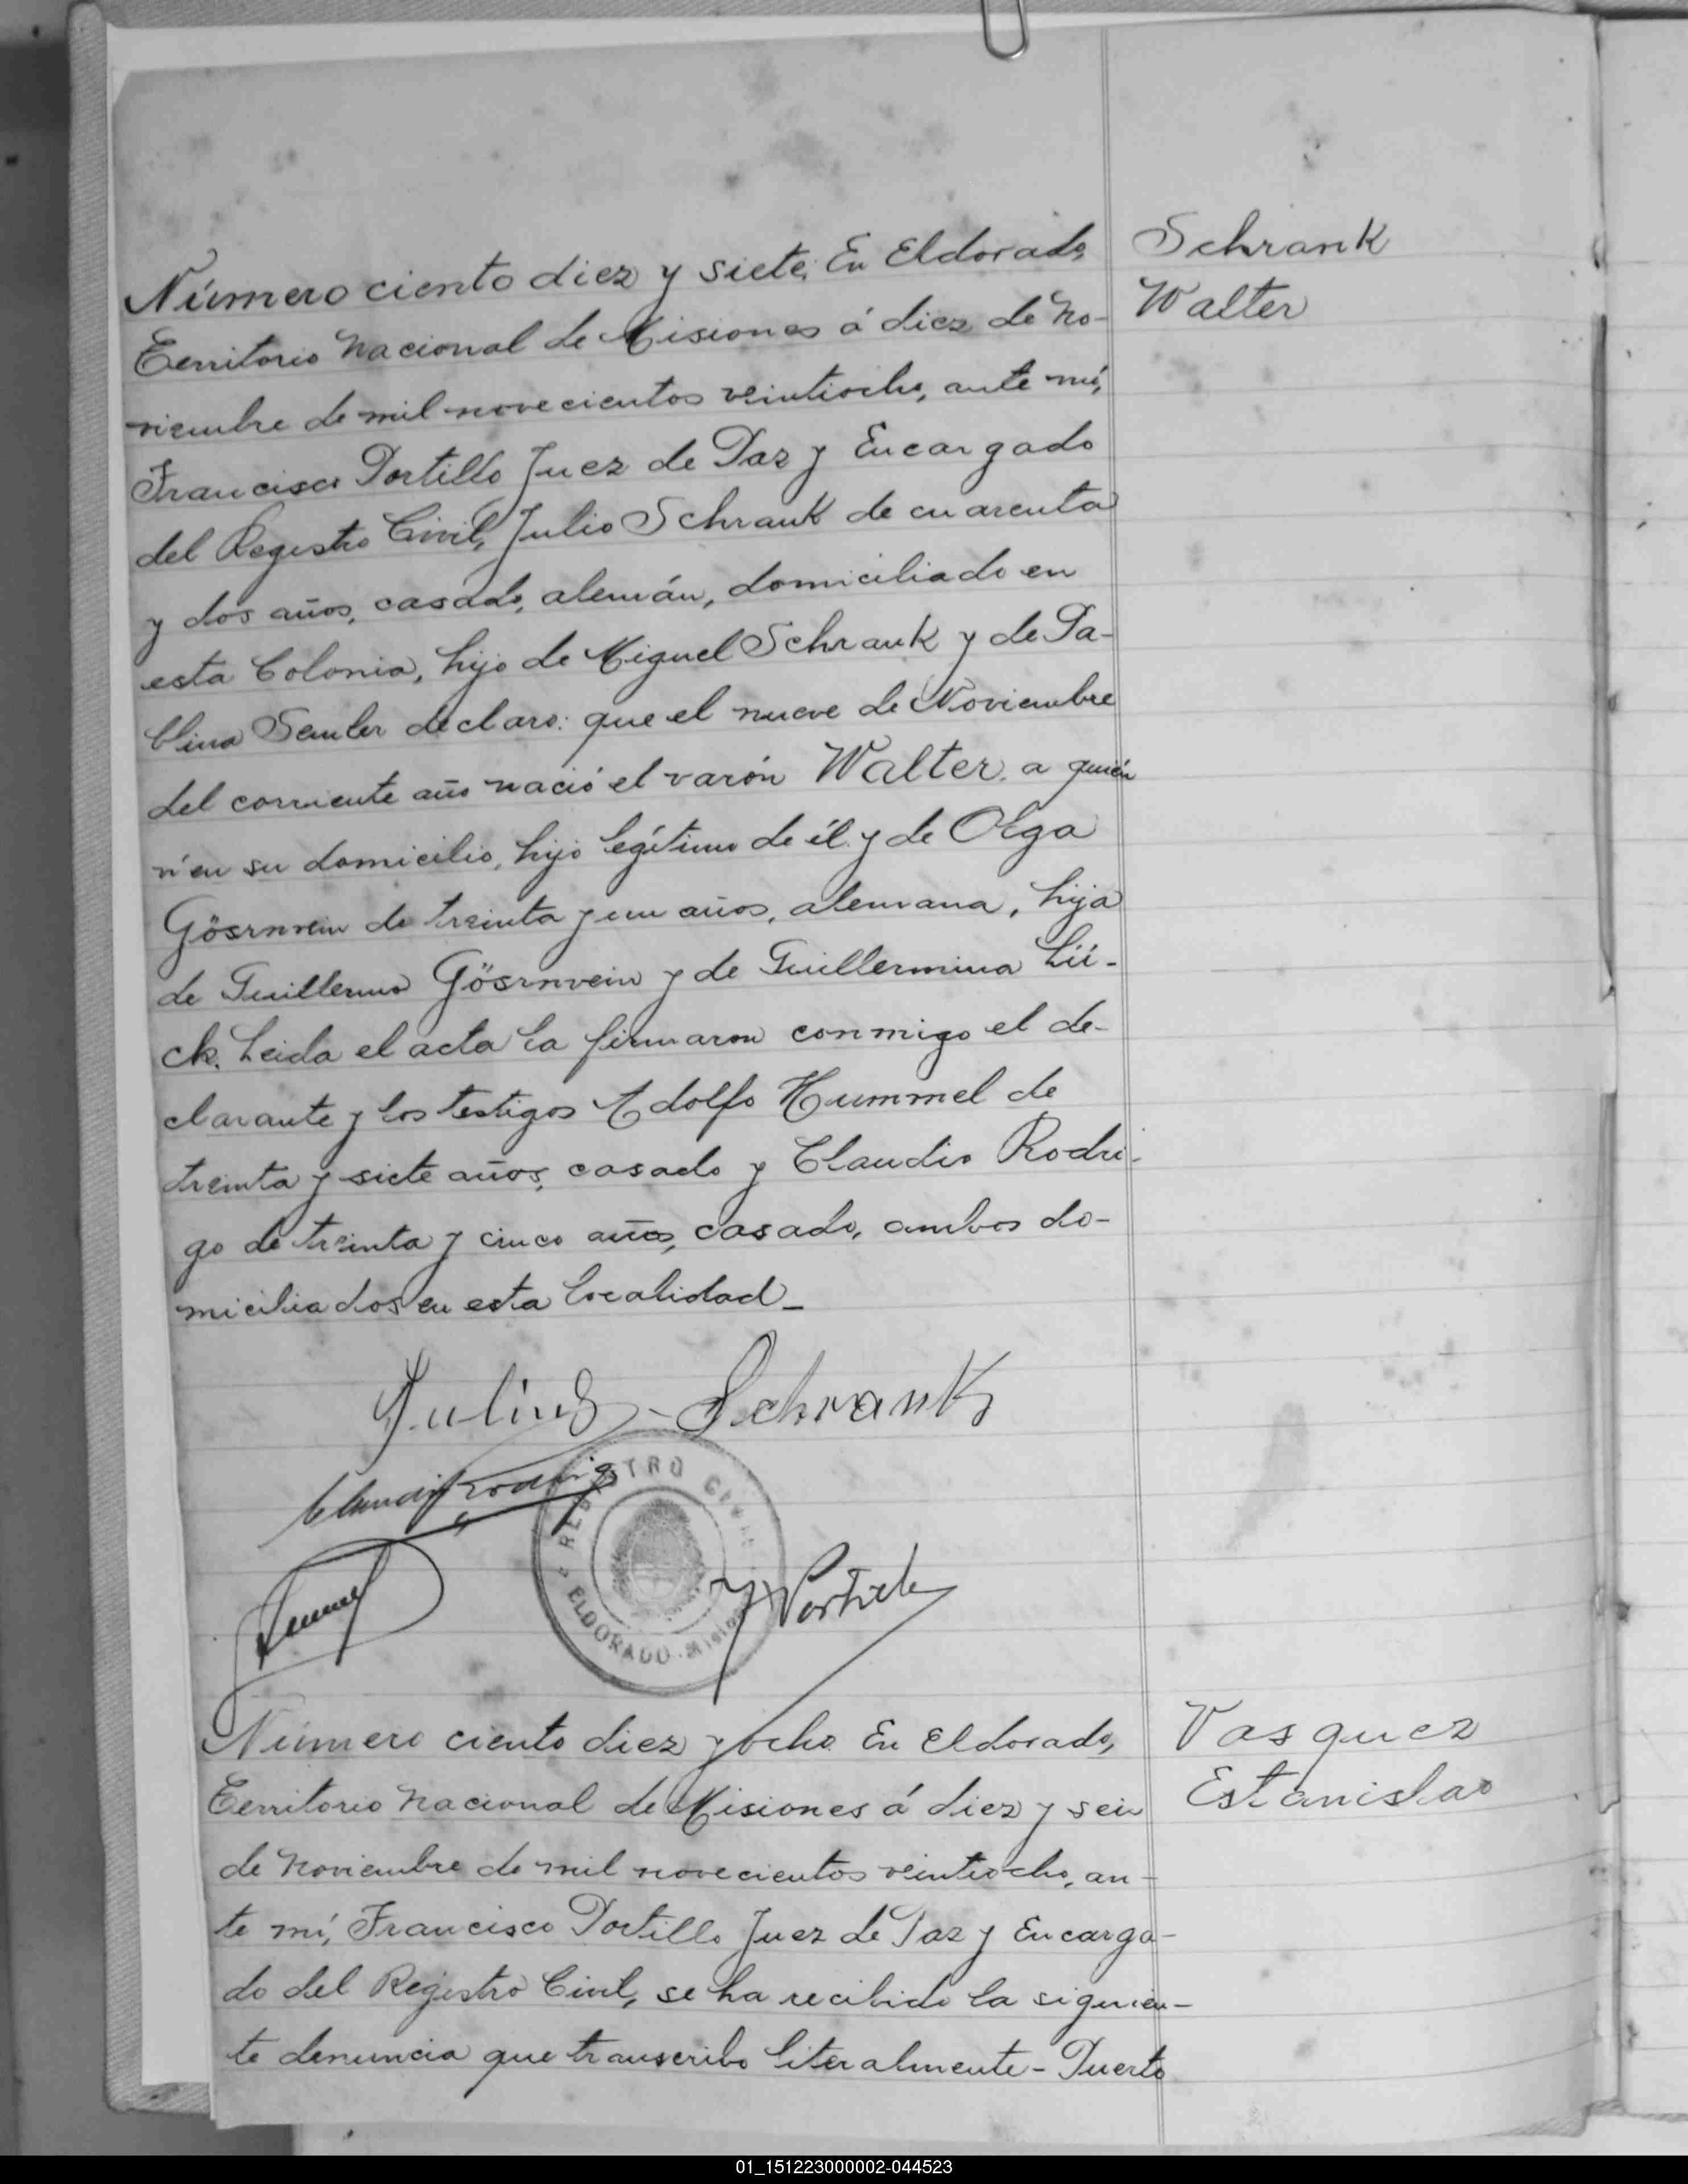 Número ciento diez y siete. En Eldorado,
Schrank
Walter
Territorio Nacional de Misiones á diez de No-
viembre de mil novecientos veintiocho, ante mí,
Francisco Portillo Juez de Paz y Encargado
del Registro Civil, Julio Schrank de cuarenta
y dos años, casado, alemán, domiciliado en
esta Colonia, hijo de Miguel Schrank y de Pa-
blina Semler declaro: que el nueve de Noviembre
del corriente año nació el varón Walter, a quién
ví en su domicilio, hijo legítimo de él y de Olga
Gösrnvein de treinta y un años, alemana, hija
de Guillermo Gösrnvein y de Guillermina Lü-
ck. Leida el acta la firmaron conmigo el de-
clarante y los testigos Adolfo Hummel de
treinta y siete años, casado y Claudio Rodri-
go de treinta y cinco años, casado, ambos do-
miciliados en esta localidad_
Julius Schrank
REGISTRO CIVIL
ELDORADO - Misiones
Portillo
Número ciento diez y ocho. En Eldorado,
Vasquez
Estanislao
Territorio Nacional de Misiones á diez y seis
de Noviembre de mil novecientos veintiocho, an-
te mí, Francisco Portillo Juez de Paz y Encarga-
do del Registro Civil, se ha recibido la siguien-
te denuncia que transcribo literalmente - Puerto
01_151223000002-044523